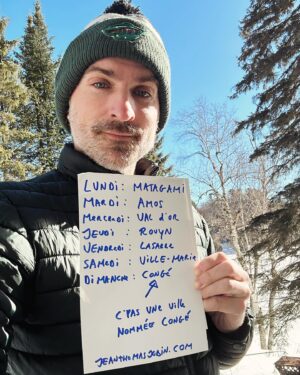 LUNDI: MATAGAMI
MARDI: AMOS
MERCREDI: VAL D'OR
JEUDI: ROUYN
VENDREDI: LASARRE
SAMEDI: VILLE-MARIE
DIMANCHE: CONGÉ
C'PAS UNE VILLE
NOMMÉE CONGÉ
JEANTHOMASJOBIN.COM